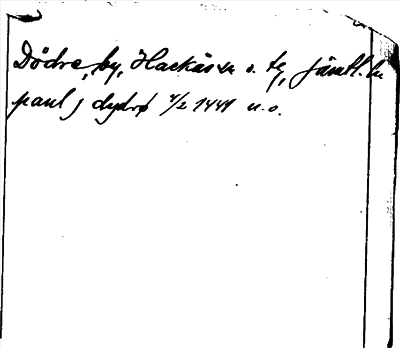 Dödre, by, Hackås sn o. tg, Jämtl. ln
paul j dydrø 4/2 1441 u.o.